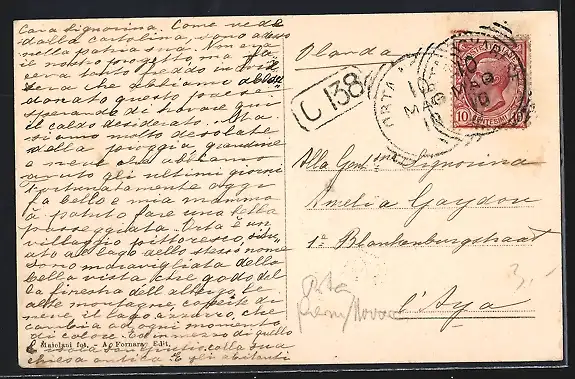 Cara Signorina. Come vede
dalla cartolina, sono adesso
nella patria sua. Non era
il nostro progetto, ma fa
ceva tanto freddo in
che abbiamo abban
donato questo paese
sperando di trovare qui
il caldo desiderato. Ma
siamo molto desolate
della pioggia, grandine
e neve che abbiamo
avuto gli ultimi giorni
Fortunatamente oggi
fa bello e mia mamma
a potuto fare una bella
passeggiata. Orta è un
villaggio pittoresco, situ
ato al lago dello stesso nome
Sono maravigliata della
bella vista, che godo del
la finestra dell'albergo. Le
alte montagne, coperte di
neve, il lago azzurro, che
cambia ad ogni momento
di colore. E in mezzo di quello
colla sua
chiesa antica. E gli abitanti
Maiolani fot. - A. Fornara, Edit.
Olanda
C 138
ORTA
10 MAG 10
10 CENTESIMI
Alla Gen.ma Signorina
Amelia Gaydou
1e Blankenburgstraat
l'Aya
Orta
Novara
3.-